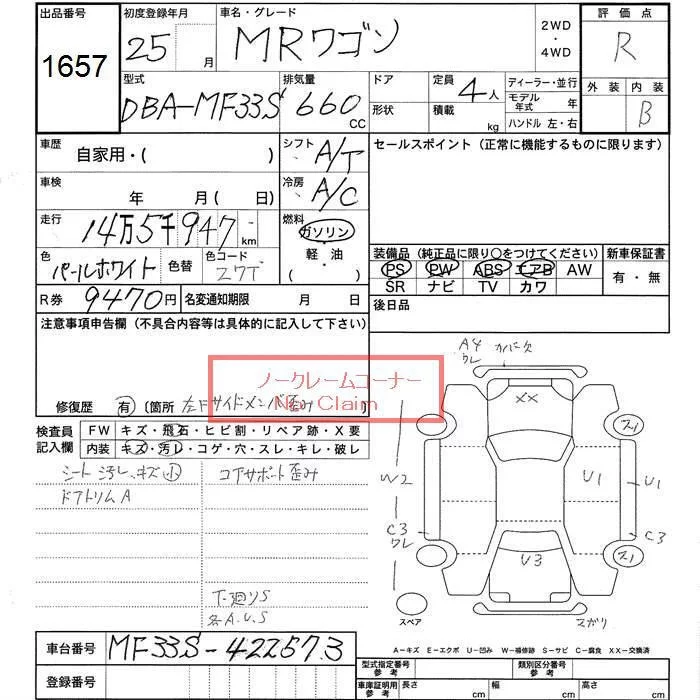 出品番号 初度登録年月 車名・グレード 2WD ・ 4WD 評価点
1657 25 月 MRワゴン R
型式 排気量 ドア 定員 ディーラー・並行 外装 内装
DBA-MF33S 660 CC 形状 4人 積載 kg モデル年式 年 ハンドル 左・右 B
車歴 自家用・( ) シフト A/T セールスポイント(正常に機能するものに限ります)
車検 年 月( 日) 冷房 A/C
走行 14万5千947 km 燃料 ガソリン
軽油
( )
色 パールホワイト 色替 色コード Z7T
装備品(純正品に限り○をつけてください) 新車保証書
PS PW ABS エアB AW 有・無
SR ナビ TV カワ
R券 9470円 名変通知期限 月 日 後日品
注意事項申告欄(不具合内容等は具体的に記入して下さい)
ノークレームコーナー
No Claim
修復歴 有 〔箇所 左Fサイドメンバ歪み
検査員 記入欄 FW キズ・飛石・ヒビ割・リペア跡・X要
内装 キズ・汚レ・コゲ・穴・スレ・キレ・破レ
シート汚レ、キズ小 コアサポート歪み
ドアトリムA
下廻りS
各A.U.S
A4 ワレ カバー欠
XX
スリ
W2
U1 U1
C3 ワレ
C3
スリ
U3
スペア
マガリ
A-キズ E-エクボ U-凹み W-補修跡 S-サビ C-腐食 XX-交換済
車台番号 MF33S-422573
登録番号
型式指定番号 参考 類別区分番号 参考
車庫証明用 参考 長さ cm 幅 cm 高さ cm